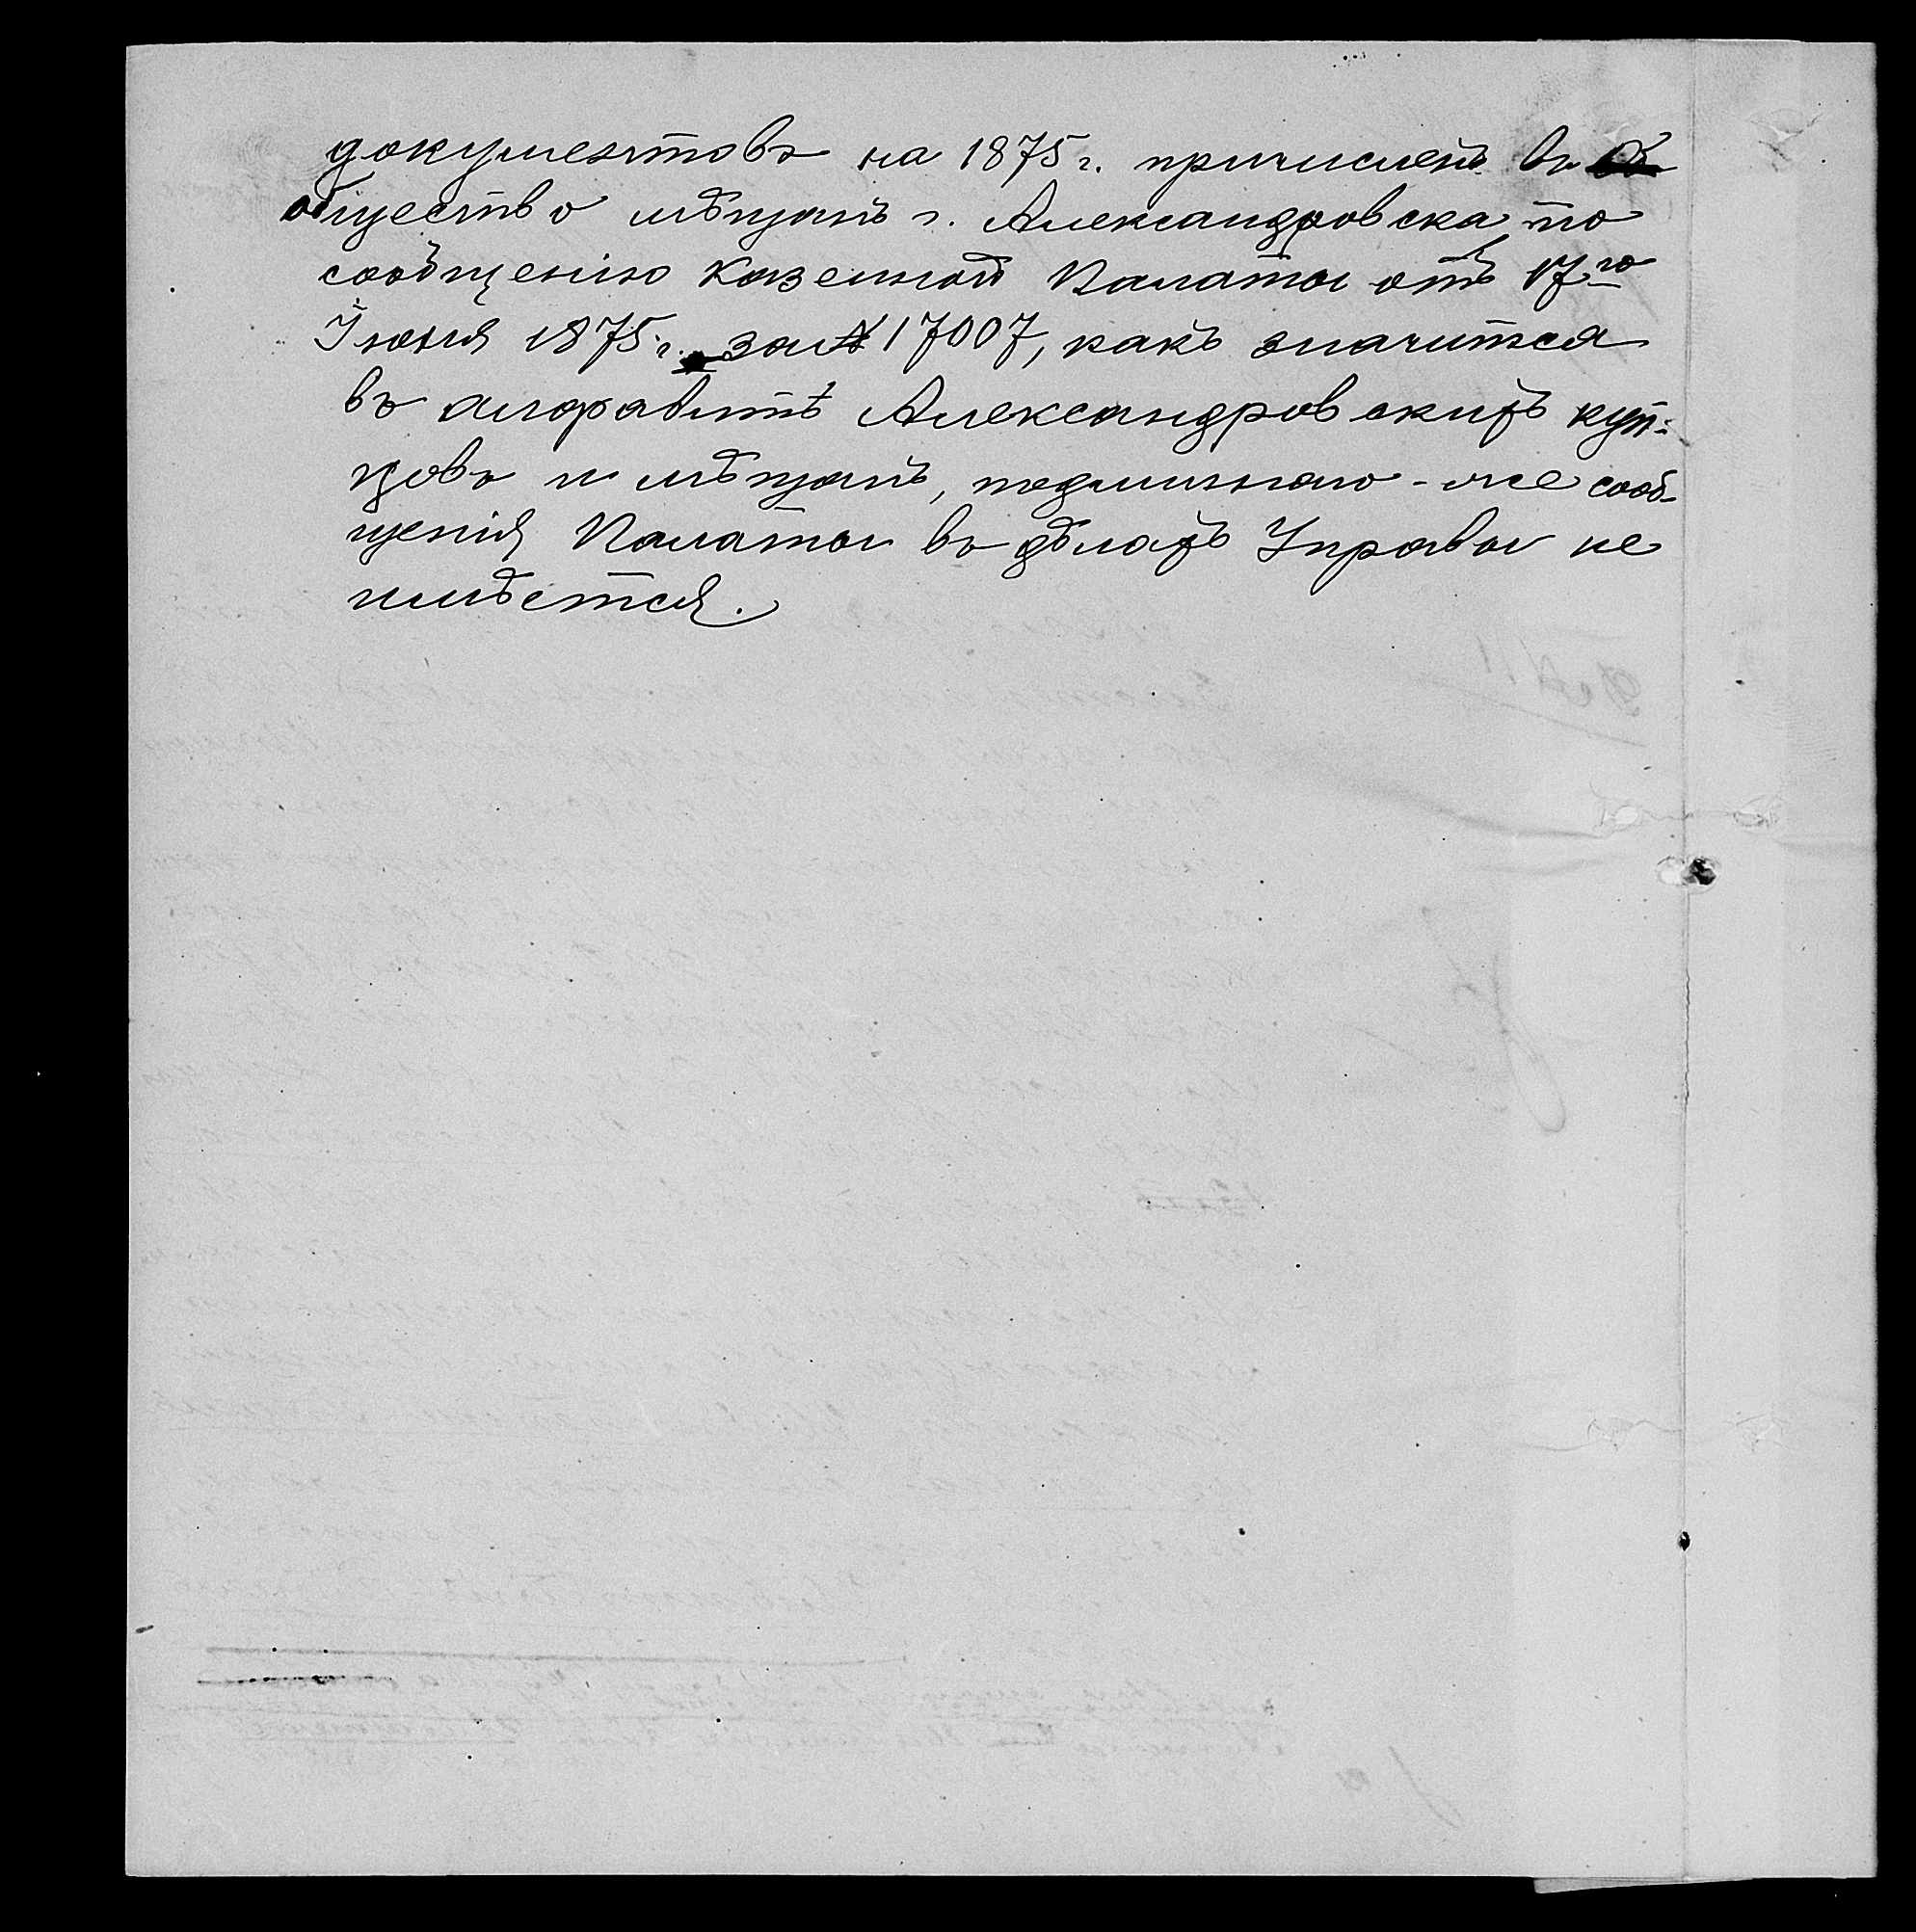 документовъ на 1875 г. причисленъ въ
общество мѣщанъ г. Александровска по
сообщенію Казенной Палаты отъ 17го
Іюня 1875 г. за № 17007, какъ значится
въ алфавитѣ Александровскихъ куп-
цовъ и мѣщанъ, подлиннаго-же сооб-
щенія Палаты въ дѣлахъ Управы не
имѣется.